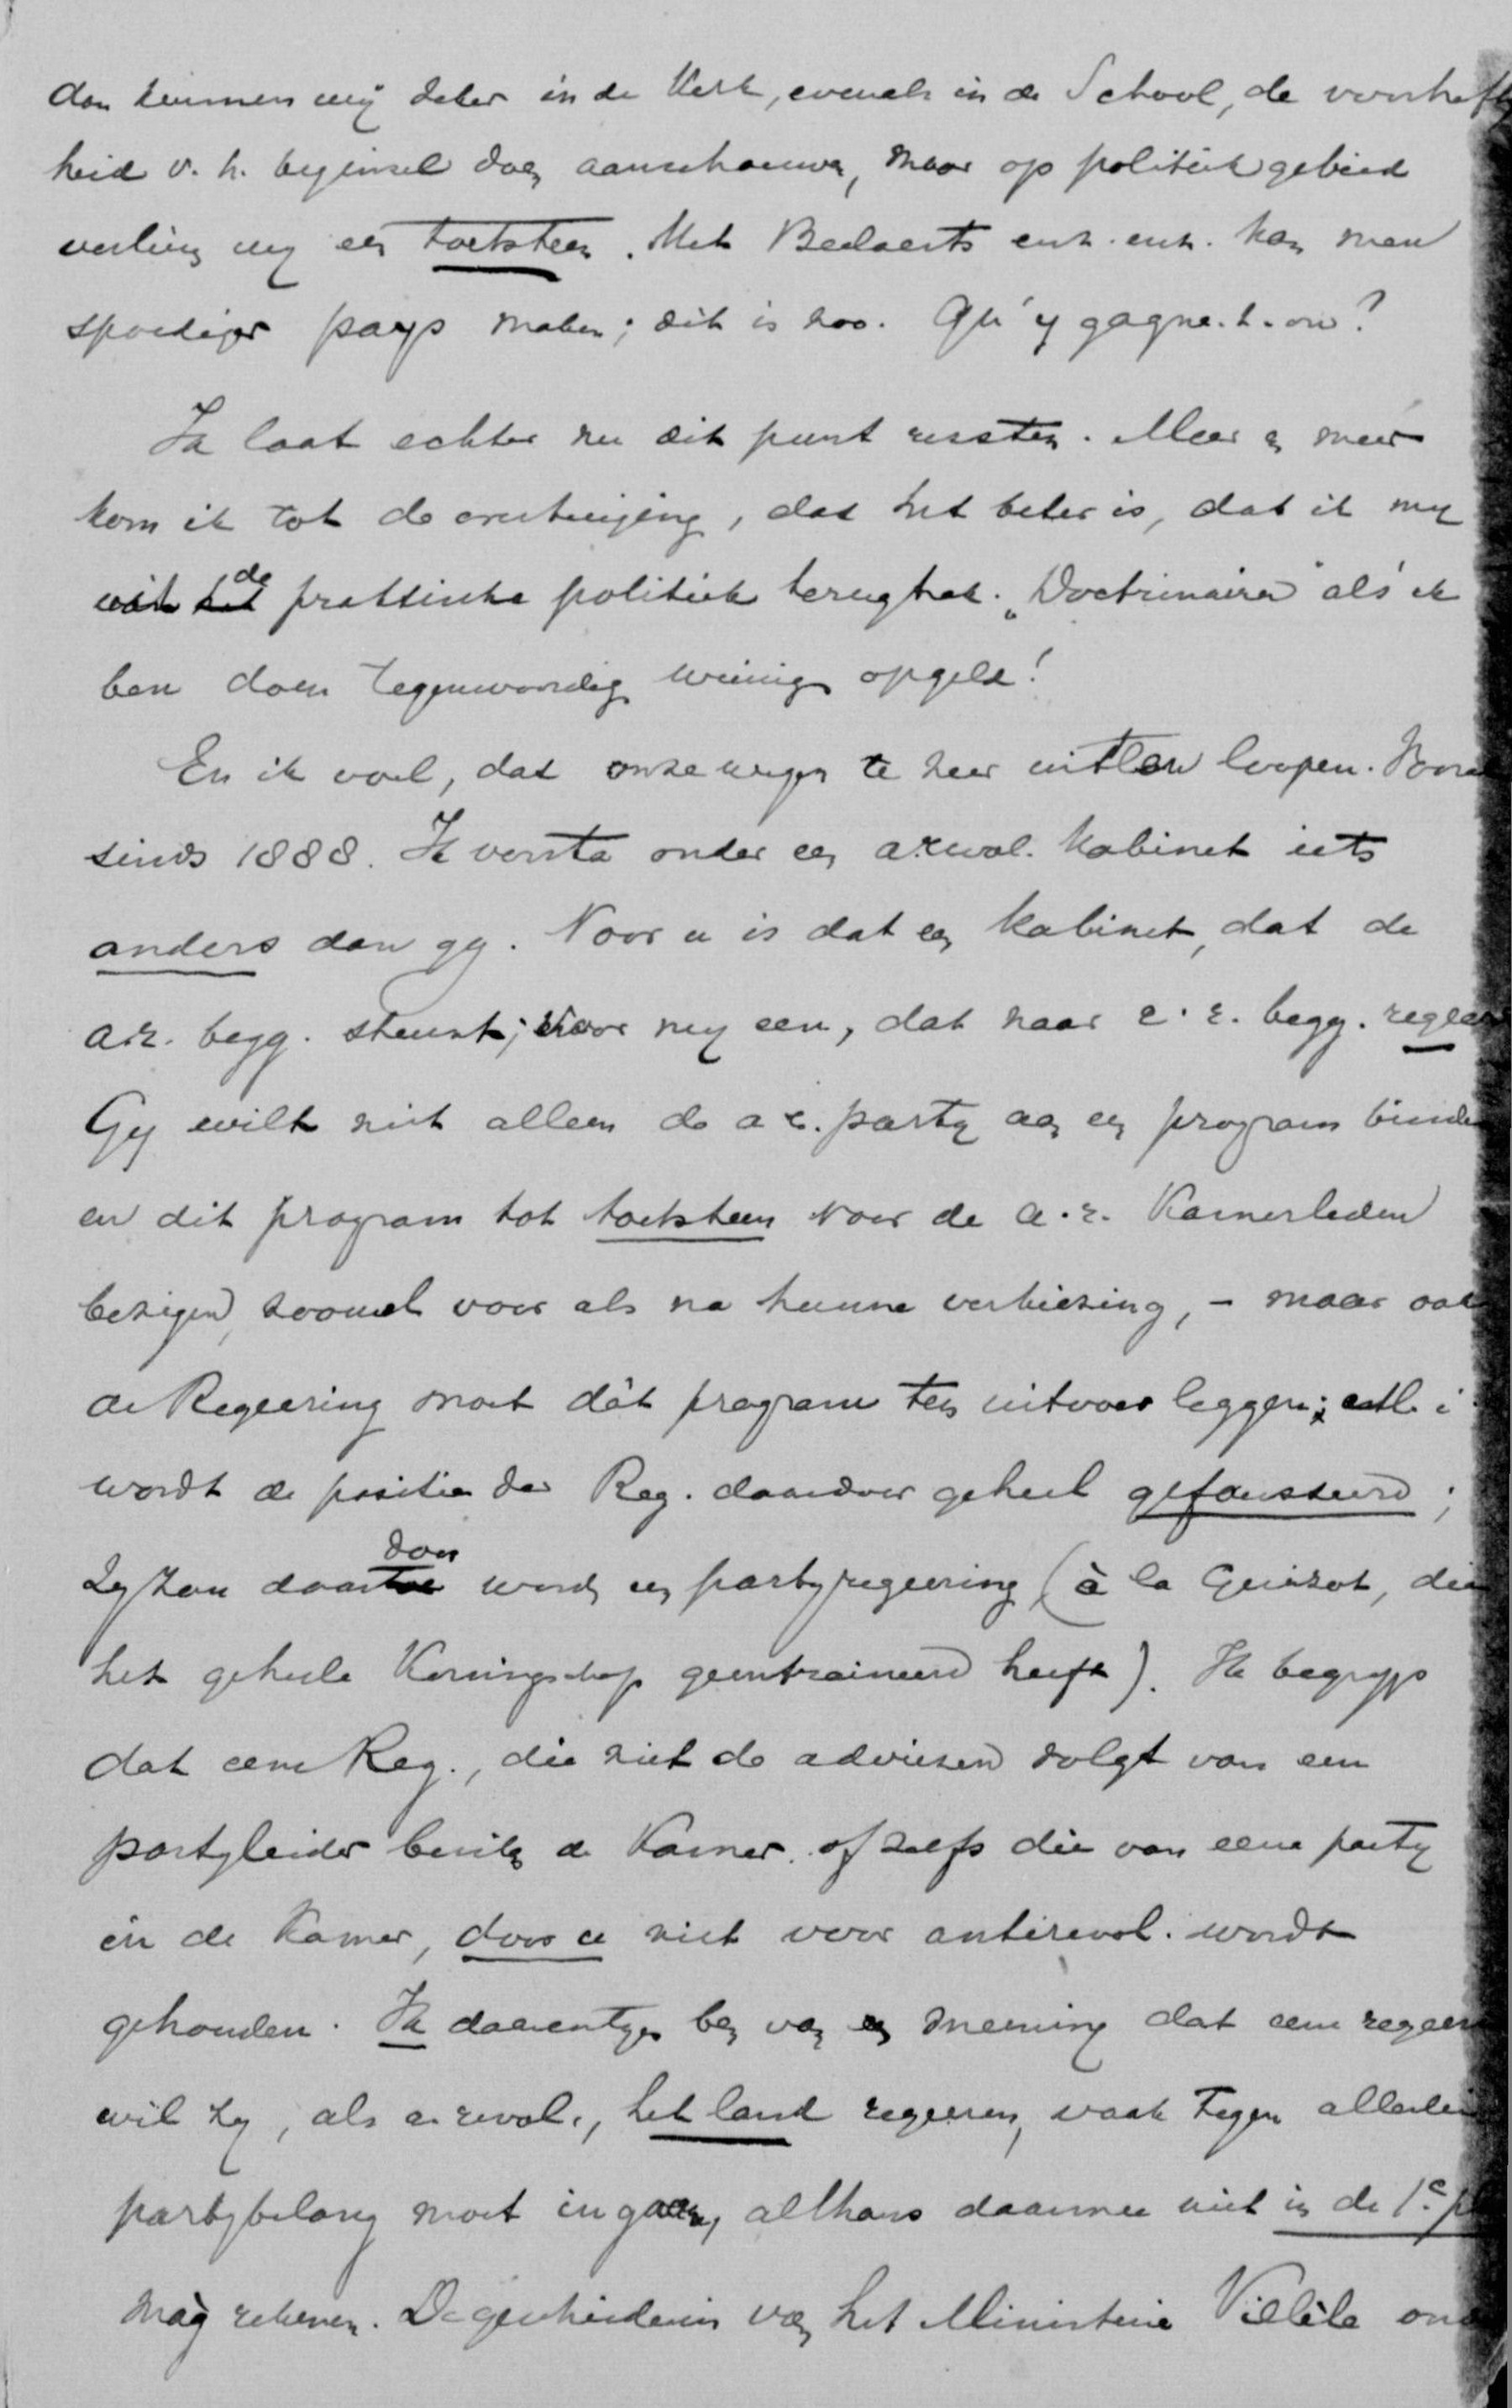 dan kunnen wij zeker in de Kerk, evenals in de School, de voortreff
heid v. h. beginsel doen aanschouwen, maar op politiek gebied
verliezen wy een toetssteen. Met Beelaerts enz. enz. kan men
spoediger pays maken; dit is zoo. Qu'y gagne-t-on?
Ik laat echter nu dit punt rusten. Meer en meer
kom ik tot de overtuiging, dat het beter is, dat ik my
uit de praktische politiek terugtrek. „Doctrinairen" als ik
ben doen tegenwoordig weinig opgeld!
En ik voel, dat onze wegen te zeer uitleen loopen. Vooral
sinds 1888. Ik versta onder een a.revol. Kabinet iets
anders dan gy. Voor u is dat een Kabinet, dat de
a.r. begg. steunt; voor my een, dat naar a.r. begg. regeer
Gy wilt niet alleen de a.r. party aan een program binden
en dit program tot toetssteen voor de a.r. Kamerleden
bezigen, zoowel voor als na hunne verkiezing, – maar ook
de Regeering moet dàt program ten uitvoer leggen; m.i.
wordt de positie der Reg. daardoor geheel gefausseerd;
Zy zou daardoor worden een partyregeering (à la Guizot, die
het geheele Koningschap geentraineerd heeft). Ik begryp
dat eene Reg., die niet de adviezen volgt van een
partyleider buiten de Kamer of zelfs die van eene party
in de Kamer, door u niet voor antirevol. wordt
gehouden. Ik daarentegen ben van meening dat eene regeer
wil zy, als a. revol., het land regeeren, vaak tegen allerlei
partybelang moet ingaan, althans daarmee niet in de 1e pl
màg rekenen. De geschiedenis van het Ministerie Villèle ond